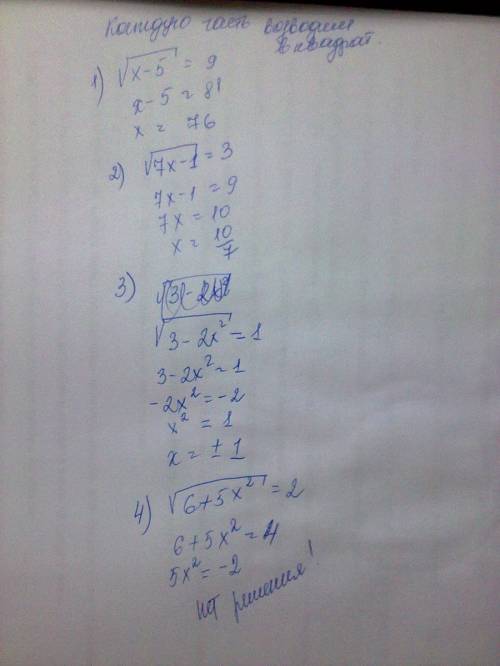 Каждую часть возводим
в квадрат.
1) √(x-5) = 9
x-5 = 81
x = 76
2) √(7x-1) = 3
7x-1 = 9
7x = 10
x = 10/7
3)
√(3-2x²) = 1
3-2x² = 1
-2x² = -2
x² = 1
x = ±1
4) √(6+5x²) = 2
6+5x² = 4
5x² = -2
нет решения!